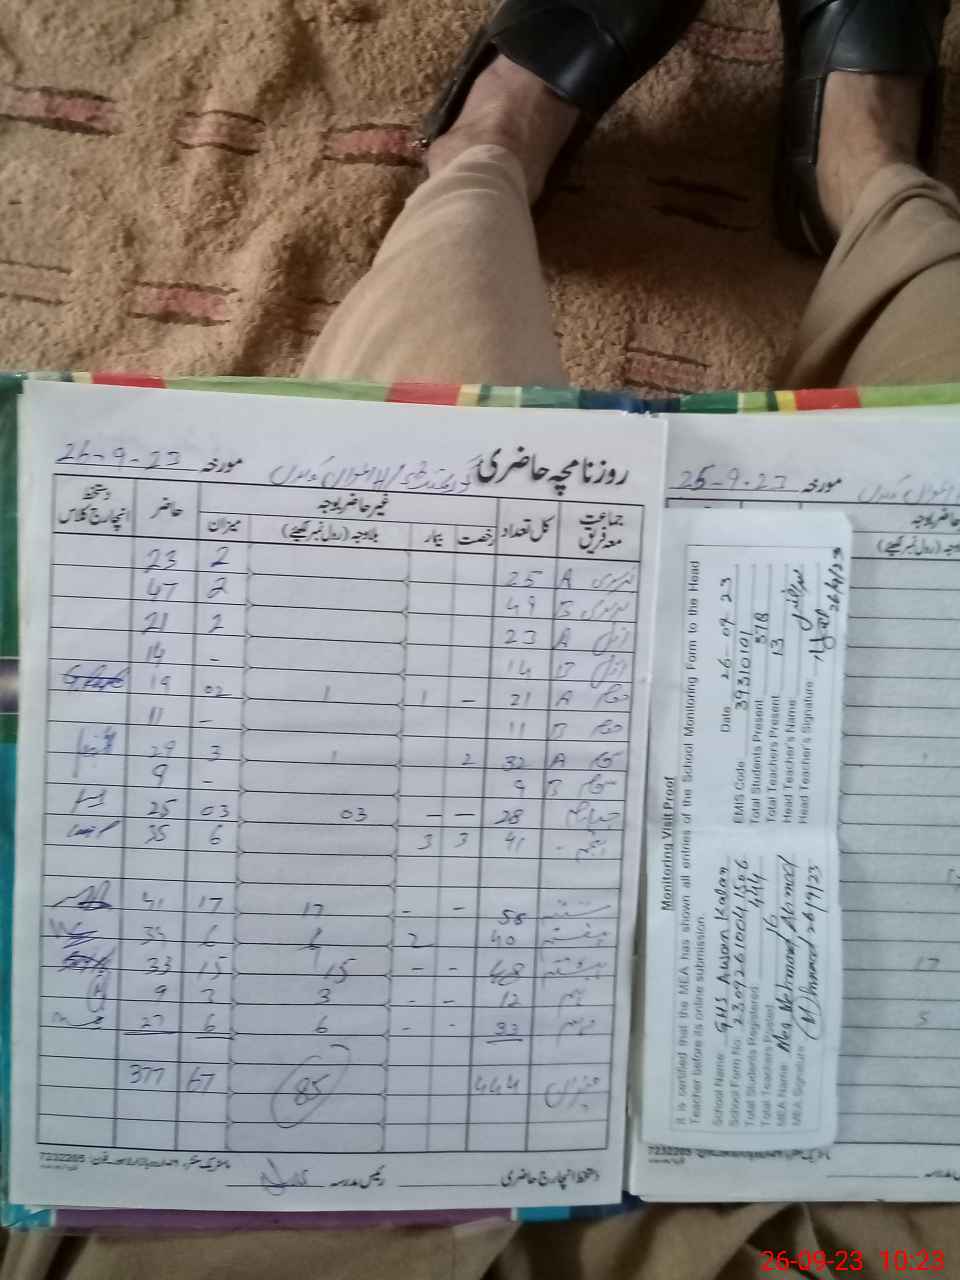 روزنامچہ حاضری
مورخہ 26-9-23
جماعت معہ فریق کل تعداد غیر حاضر بوجہ حاضر دستخط انچارج کلاس
رخصت بیمار بلاوجہ (رول نمبر لکھیئے) میزان
A 25 2 23
B 49 2 47
اول A 23 2 21
اول B 14 - 14
دوم A 21 - 1 1 02 19
دوم B 11 - 11
سوم A 32 2 1 3 29
سوم B 9 - 9
چہارم 28 - - 03 03 25
پنجم 41 3 3 6 35
ششم 58 - - 17 17 41
ہفتم 40 2 6
ہشتم 48 - - 15 15 33
نہم 12 - - 3 3 9
دہم 33 - - 6 6 27
میزان 444 85 67 377
دستخط انچارج حاضری رئیس مدرسہ
7232265
مورخہ 25-9-23
حاضر بوجہ
(رول نمبر لکھیئے)
17
5
7232265
Monitoring Visit Proof
It is certified that the MEA has shown all entries of the School Monitoring Form to the Head
Teacher before its online submission.
School Name: GHS Awan Kalan Date 26-09-23
School Form No: 23092610041506 EMIS Code 39310101
Total Students Registered 444 Total Students Present 378
Total Teachers Posted 16 Total Teachers Present 13
MEA Name: Mehmood Ahmad Head Teacher's Name
MEA Signature: 26/9/23 Head Teacher's Signature 26/9/23
26-09-23 10:23